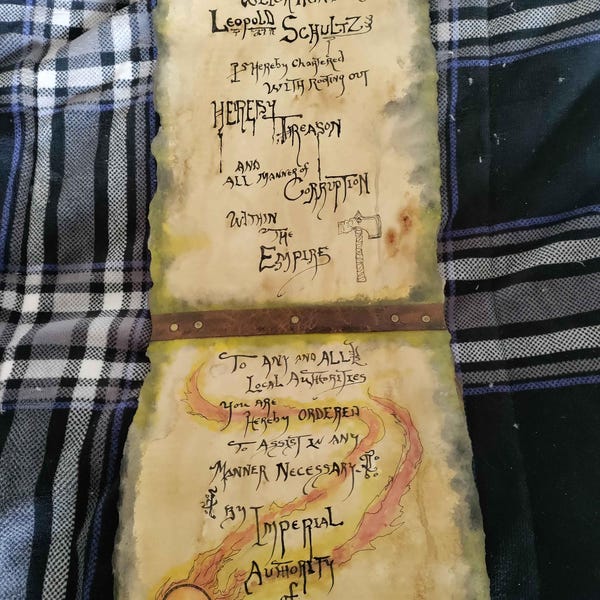 Leopold von Schultz
Is Hereby Chartered
With Rooting out
Hereby
Treason
and
all manner of
Corruption
Within
The
Empire
To Any and All
Local Authorities
You are
Hereby Ordered
To Assist in any
Manner Necessary
By Imperial
Authority
of